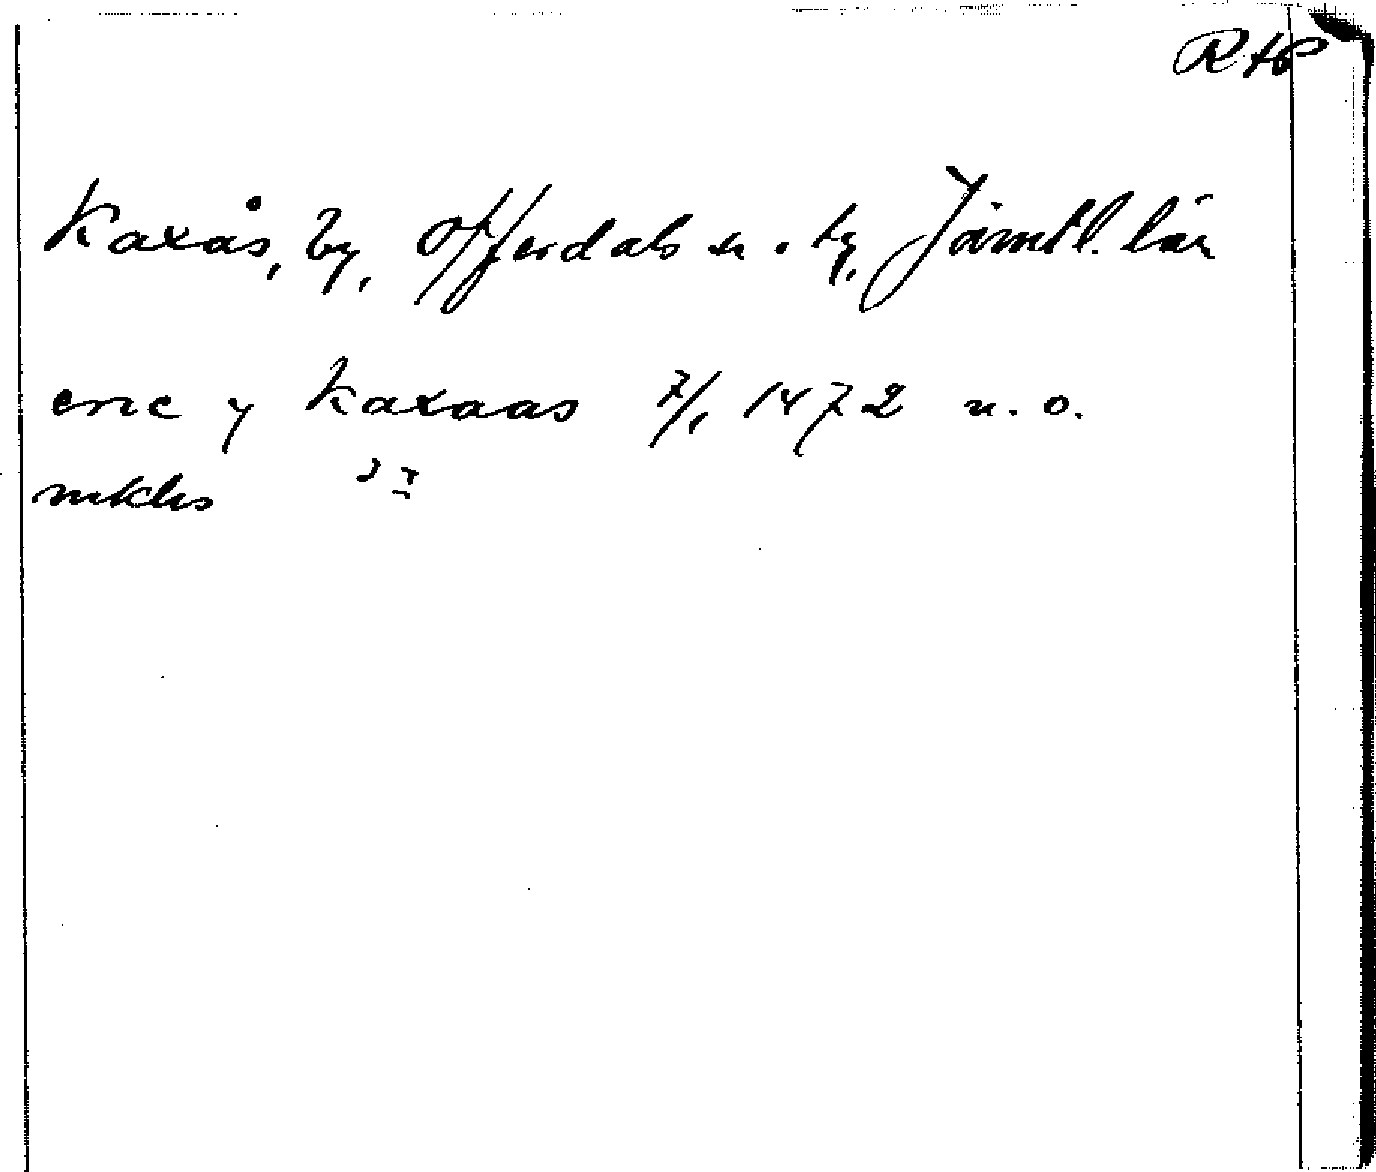 RAP
Kaxås, by, Offerdals sn. o. tg, Jämtl. län
eric y Kaxaas 7/1 1472 n. o.
niklis